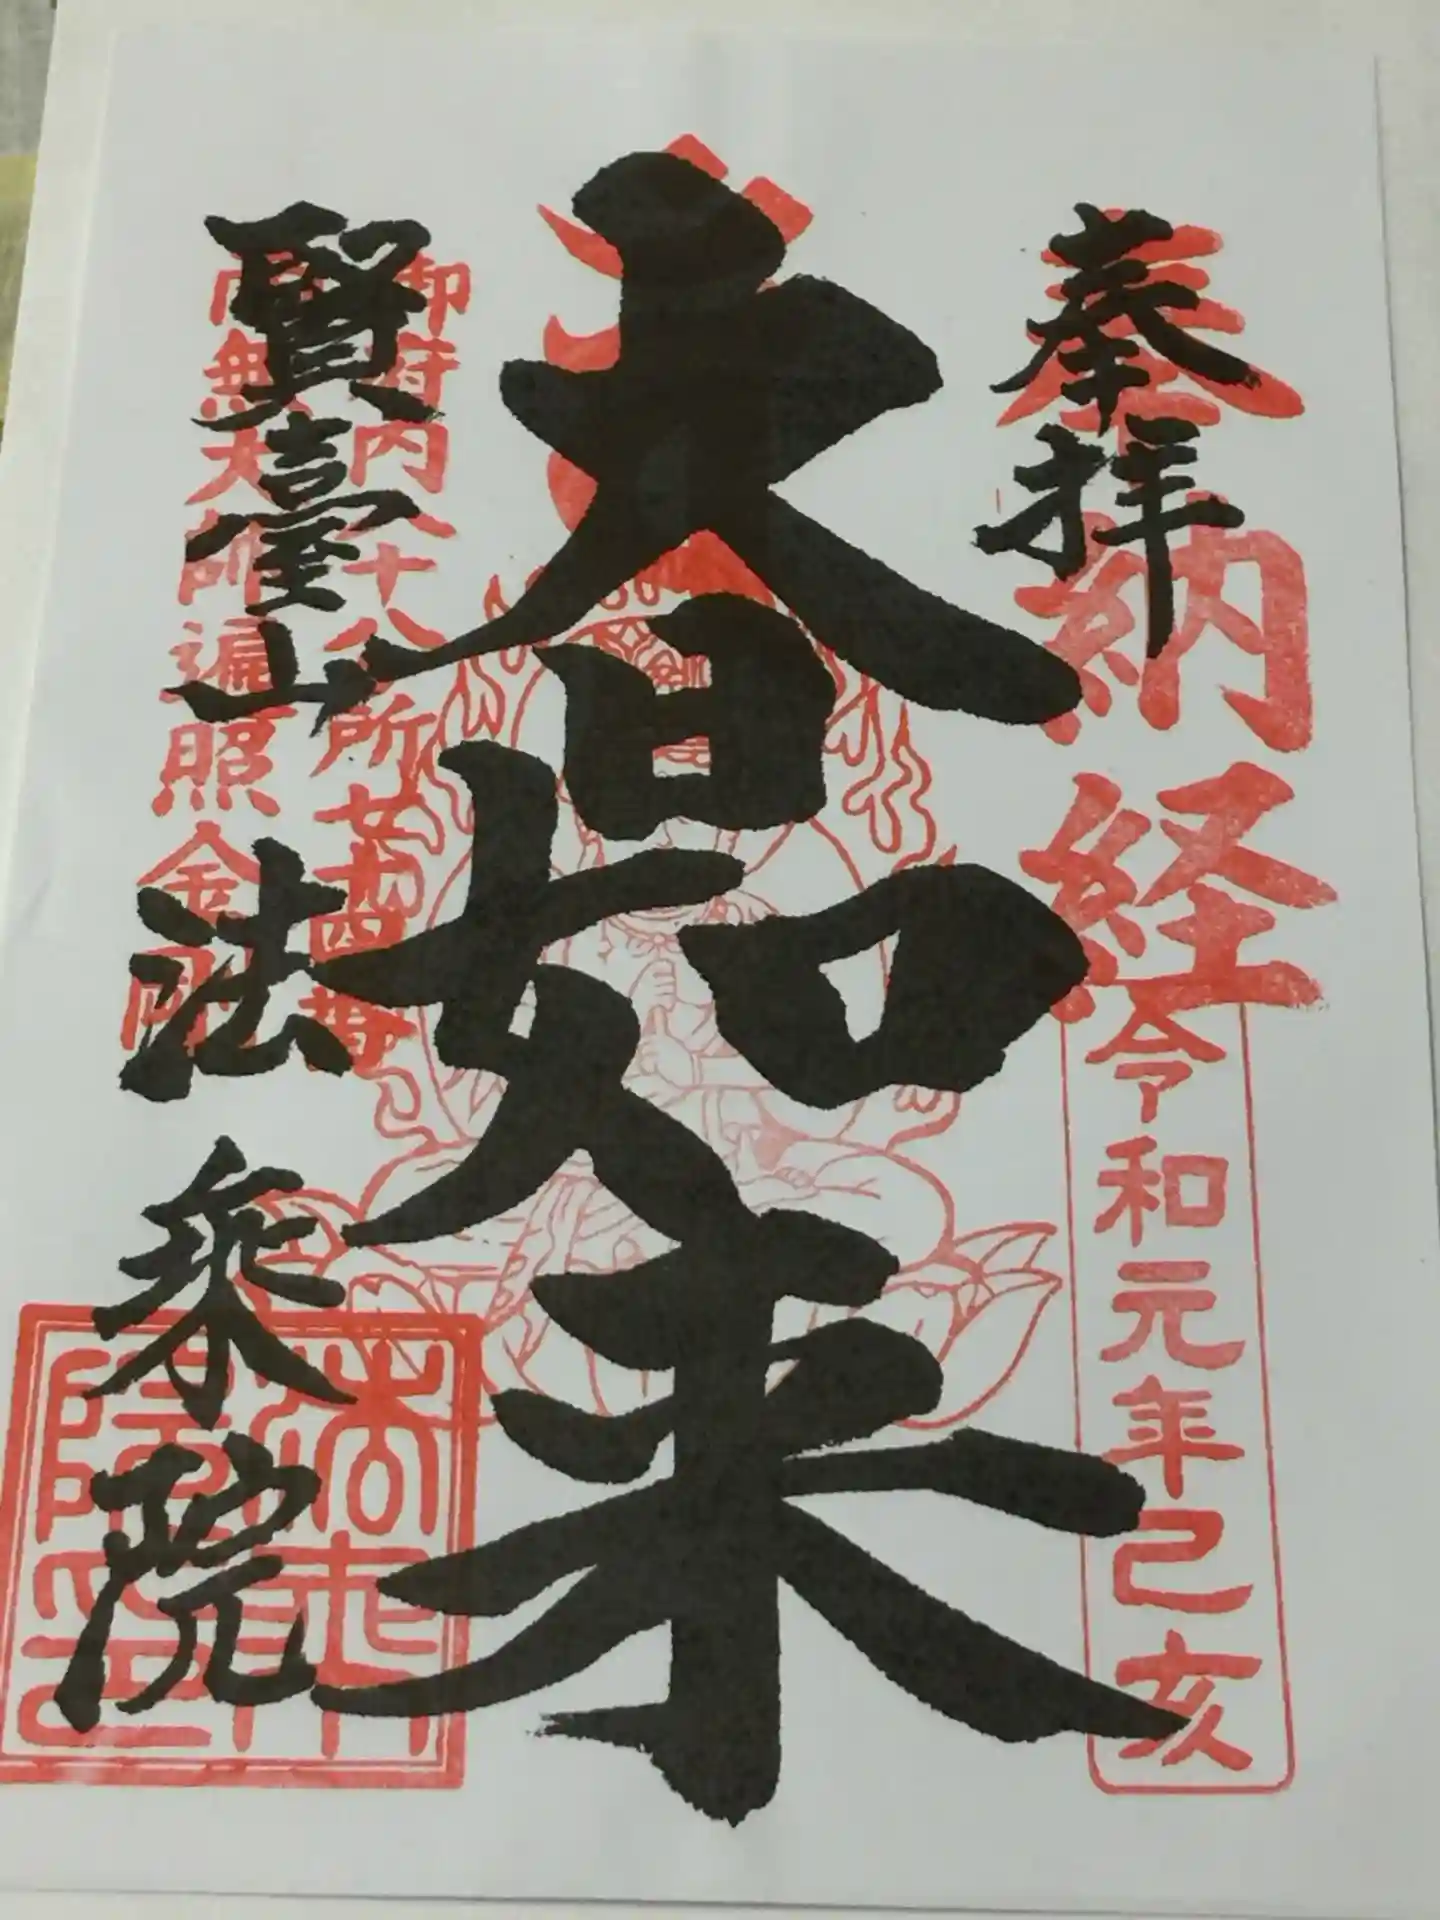 奉拝
奉納経
令和元年己亥
大日如来
御府内八十八ヶ所第廿四番
南無大師遍照金剛
賢臺山
法乗院